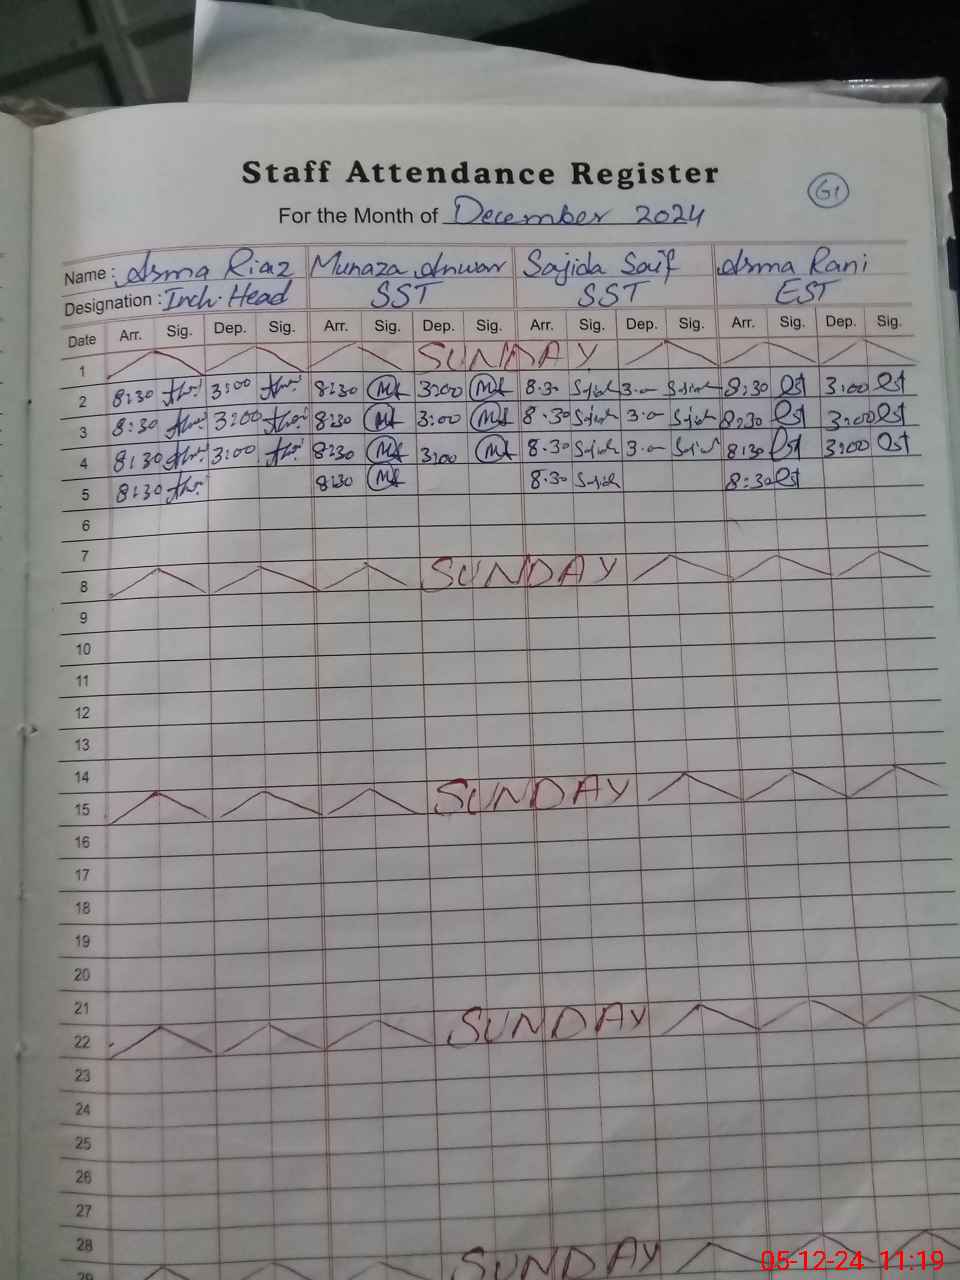 Staff Attendance Register
G1
For the Month of December 2024
Name : Asma Riaz Munaza Anwar Sajida Saif Asma Rani
Designation : Inch. Head SST SST EST
Date Arr. Sig. Dep. Sig. Arr. Sig. Dep. Sig. Arr. Sig. Dep. Sig. Arr. Sig. Dep. Sig.
1 SUNDAY
2 8:30 3:00 8:30 3:00 8.30 3.00 8:30 3:00
3 8:30 3:00 8:30 3:00 8.30 3.00 8:30 3:00
4 8:30 3:00 8:30 3:00 8.30 3.00 8:30 3:00
5 8:30 8:30 8.30 8:30
6
7
8 SUNDAY
9
10
11
12
13
14
15 SUNDAY
16
17
18
19
20
21
22 SUNDAY
23
24
25
26
27
28
29 SUNDAY
05-12-24 11:19